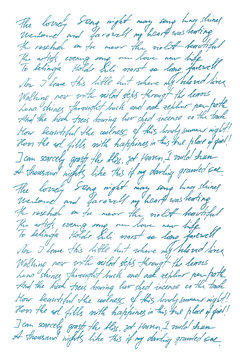 The lovely song night may song long shines
Welcomed and farewell my heart was beating
The rosebush on the moor the violet beautiful
The artists evening song new love new life
To belinda Holds this most so long farewell
Now I leave this little hut where my beloved lives
Walking now with veiled steps through the leaves
Luna shines through bush and oak zephyr path
And the birch trees bowing low shed incense on the track
How beautiful the coolness of this lovely summer night!
How the soul fills with happiness in this true place of quiet!
I can scarcely grasp the bliss, yet Heaven, I would shun
A thousand nights like this if my darling granted one
The lovely song night may song long shines
Welcomed and farewell my heart was beating
The rosebush on the moor the violet beautiful
The artists evening song new love new life
To belinda Holds this most so long farewell
Now I leave this little hut where my beloved lives
Walking now with veiled steps through the leaves
Luna shines through bush and oak zephyr path
And the birch trees bowing low shed incense on the track
How beautiful the coolness of this lovely summer night!
How the soul fills with happiness in this true place of quiet!
I can scarcely grasp the bliss, yet Heaven, I would shun
A thousand nights like this if my darling granted one